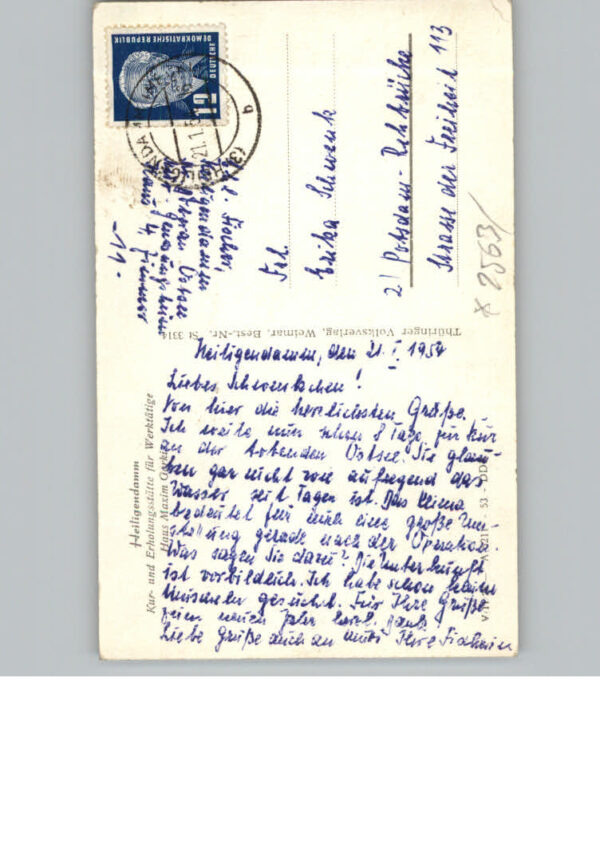 DEUTSCHE
DEMOKRATISCHE REPUBLIK
12
(3) HEILIGENDAMM
21.1.5
b
Fischer,
Heiligendamm
Ostsee
Haus 4, Zimmer
-11-
Frl.
Erika Schwenk
2) Potsdam-Rehbrücke
Strasse der Freiheit 113
* 2563/
Thüringer Volksverlag, Weimar, Best.-Nr. St 3314
Heiligendamm
Kur- und Erholungsstätte für Werktätige
Haus Maxim Gorki
Heiligendamm, den 21.I.1954
Liebes Schwenkchen!
Von hier die herzlichsten Grüße.
Ich weile nun schon 8 Tage zur Kur
an der tobenden Ostsee. Sie glau-
ben gar nicht wie aufregend das
Wasser seit Tagen ist. Das Klima
bedeutet für mich eine große Um-
stellung gerade nach der Operation.
Was sagen Sie dazu? Die Unterkunft
ist vorbildlich. Ich habe schon
Muscheln gesucht. Für Ihre Grüße
zum neuen Jahr herzl. Dank.
Liebe Grüße auch an Ihre Fischerin
53 - DD